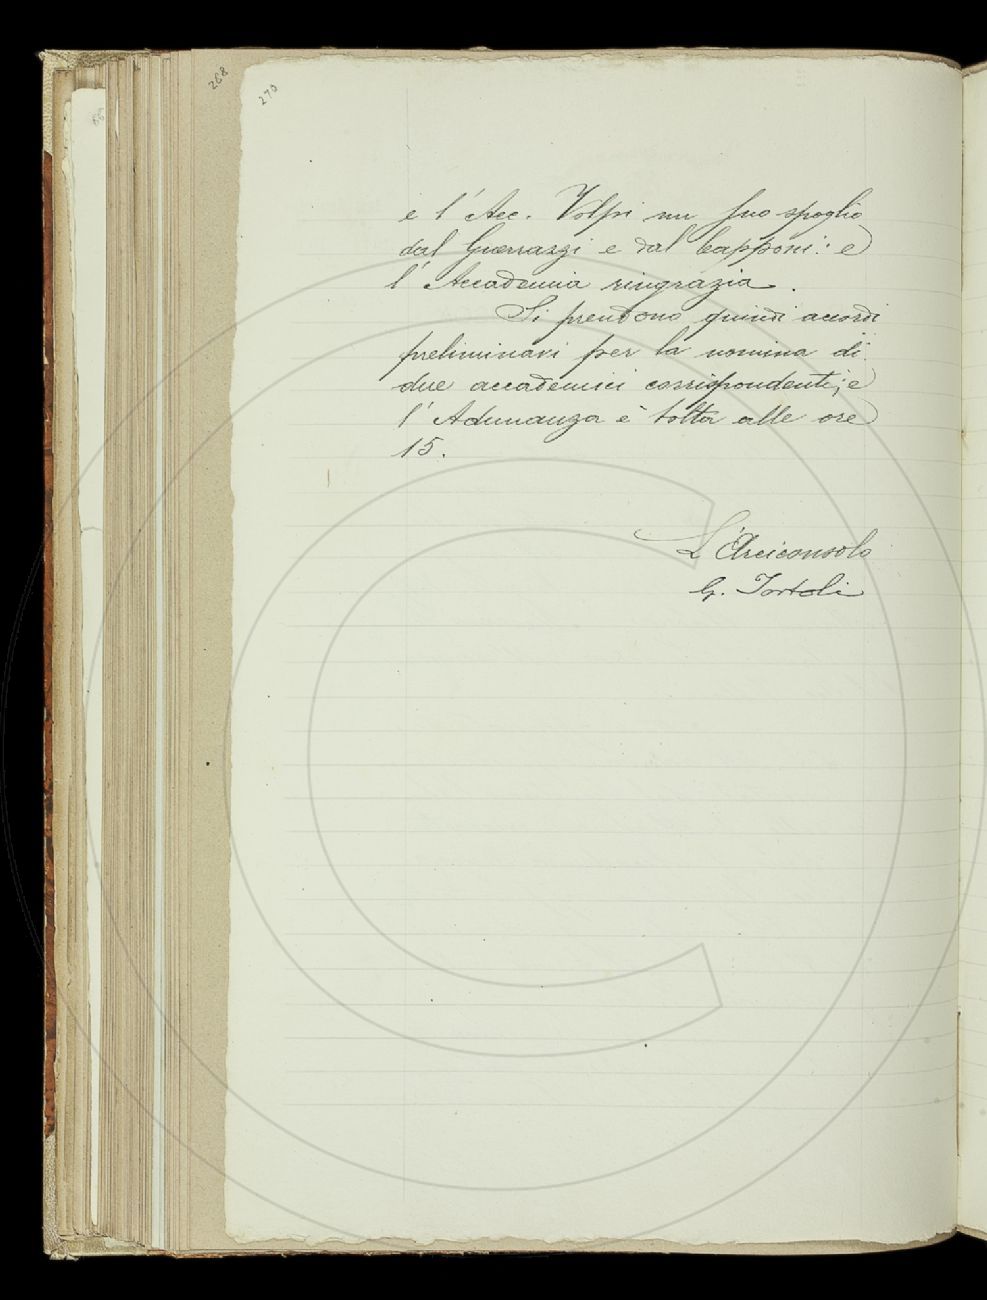 268
270
e l'Acc. Volpi un suo spoglio
dal Guerrazzi e dal Capponi: e
l'Accademia ringrazia.
Si prendono quindi accordi
preliminari per la nomina di
due accademici corrispondenti; e
l'Adunanza è tolta alle ore
15.
L'Arciconsolo
G. Tortoli